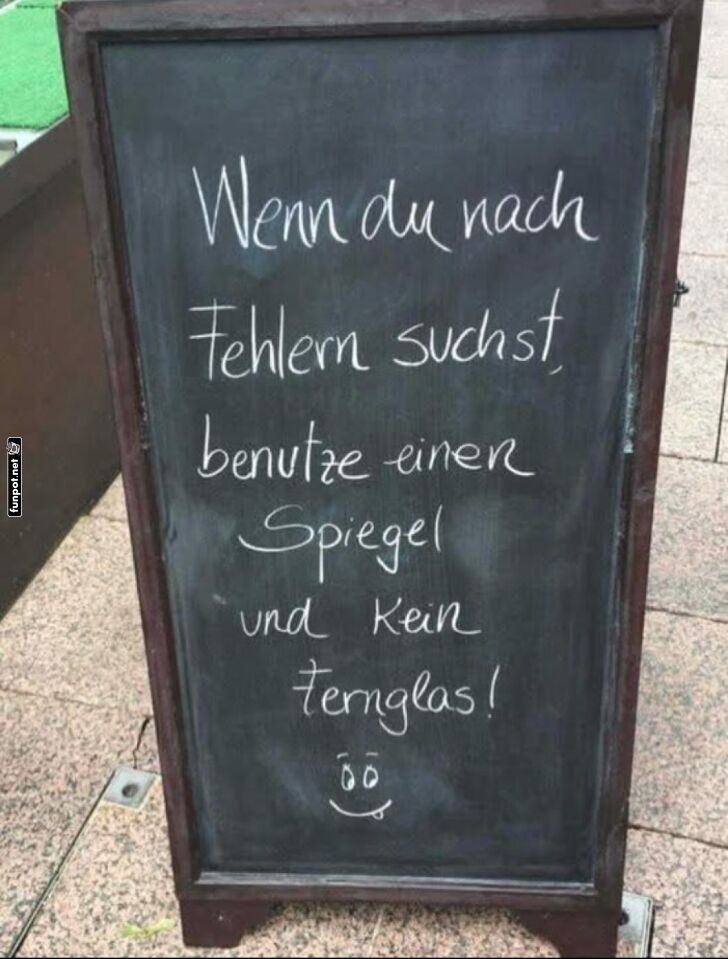 Wenn du nach
Fehlern suchst,
benutze einen
Spiegel
und kein
Fernglas!
funpot.net